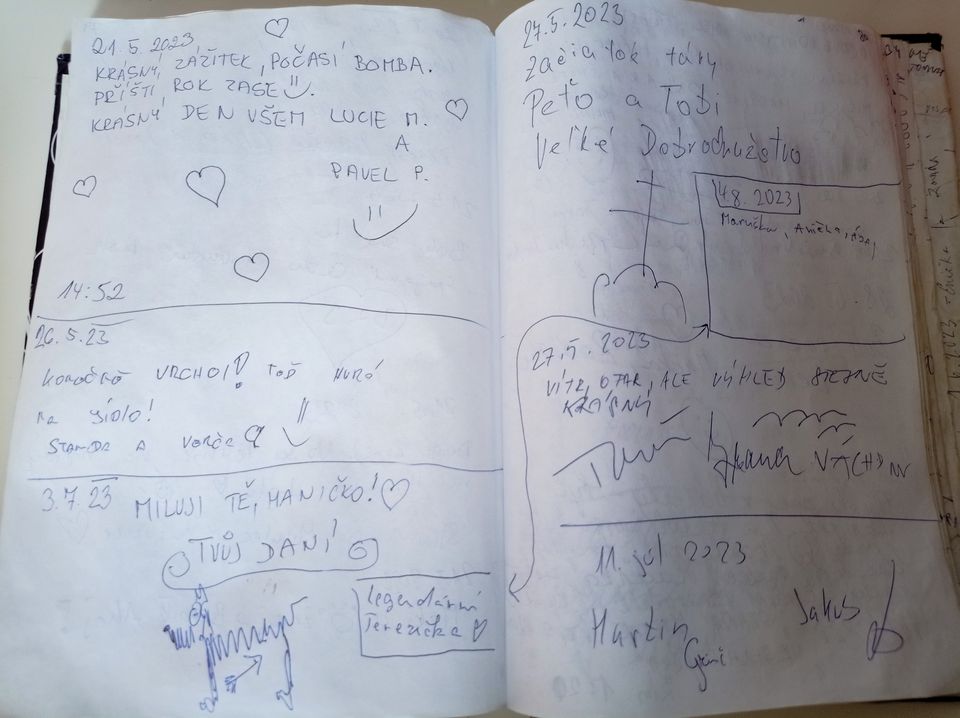 21.5.2023
KRÁSNÝ ZÁŽITEK, POČASÍ BOMBA.
PŘÍŠTÍ ROK ZASE
KRÁSNÝ DEN VŠEM LUCIE M.
A
PAVEL P.
14:52
26.5.23
KONEČNĚ VRCHOL! TOĎ HURÁ
NA JÍDLO!
STANDA A
3.7.23 MILUJI TĚ, HANIČKO!
TVŮJ DANÍ
legendární
Terezička
27.5.2023
začiatok túry
Peťo a Tobi
Veľké Dobrodružstvo
4.8. 2023
Maruška, Anička,
27.5.2023
VÍTR, OPAR, ALE VÝHLED STEJNĚ
KRÁSNÝ
11. júl 2023
Martin
Jakub